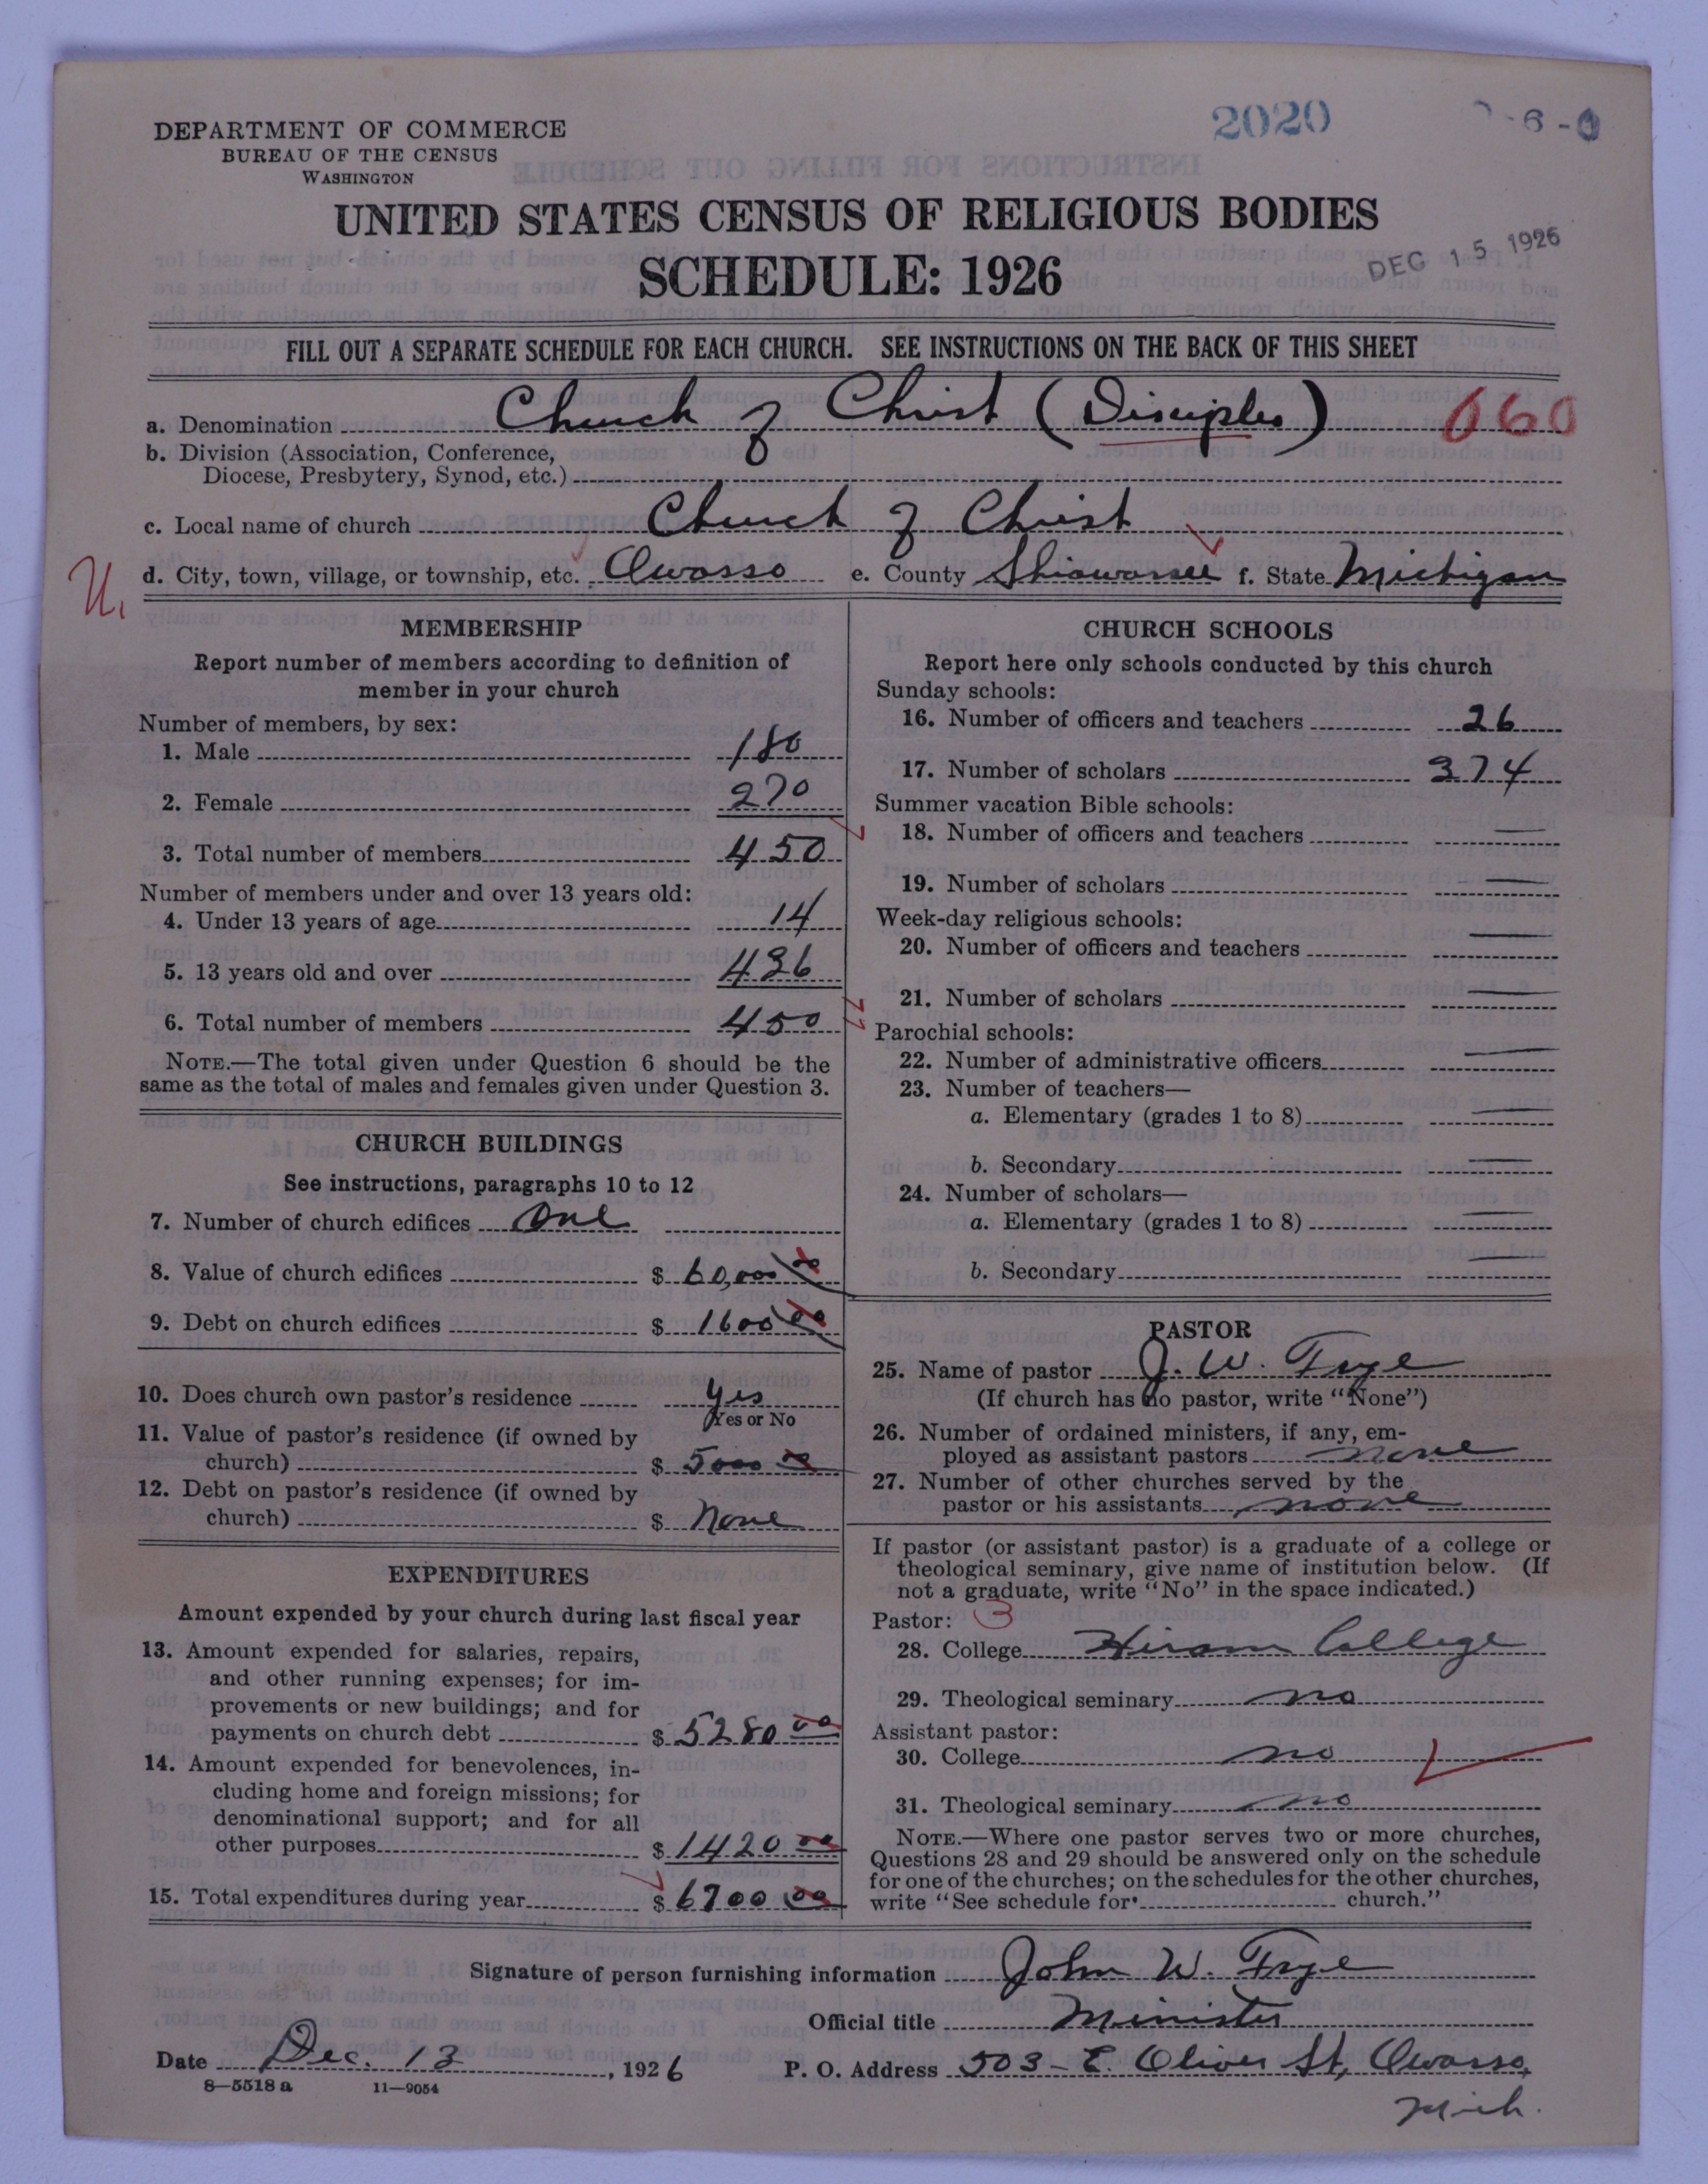 2020
-6-0
DEPARTMENT OF COMMERCE
BUREAU OF THE CENSUS
WASHINGTON
UNITED STATES CENSUS OF RELIGIOUS BODIES
SCHEDULE: 1926
DEC 15 1926
FILL OUT A SEPARATE SCHEDULE FOR EACH CHURCH. SEE INSTRUCTIONS ON THE BACK OF THIS SHEET
a. Denomination Church of Christ (Disciples) 060
b. Division (Association, Conference,
Diocese, Presbytery, Synod, etc.)
c. Local name of church Church of Christ
U. d. City, town, village, or township, etc. Owosso e. County Shiawassee f. State Michigan
MEMBERSHIP
Report number of members according to definition of
member in your church
Number of members, by sex:
1. Male 180
2. Female 270
3. Total number of members 450
Number of members under and over 13 years old:
4. Under 13 years of age 14
5. 13 years old and over 436
6. Total number of members 450
NOTE.—The total given under Question 6 should be the
same as the total of males and females given under Question 3.
CHURCH BUILDINGS
See instructions, paragraphs 10 to 12
7. Number of church edifices One
8. Value of church edifices $ 60,000 00
9. Debt on church edifices $ 1600 00
10. Does church own pastor's residence Yes
Yes or No
11. Value of pastor's residence (if owned by
church) $ 5000 00
12. Debt on pastor's residence (if owned by
church) $ None
EXPENDITURES
Amount expended by your church during last fiscal year
13. Amount expended for salaries, repairs,
and other running expenses; for im-
provements or new buildings; and for
payments on church debt $ 5280 00
14. Amount expended for benevolences, in-
cluding home and foreign missions; for
denominational support; and for all
other purposes $ 1420 00
15. Total expenditures during year $ 6700 00
CHURCH SCHOOLS
Report here only schools conducted by this church
Sunday schools:
16. Number of officers and teachers 26
17. Number of scholars 374
Summer vacation Bible schools:
18. Number of officers and teachers —
19. Number of scholars —
Week-day religious schools:
20. Number of officers and teachers —
21. Number of scholars —
Parochial schools:
22. Number of administrative officers —
23. Number of teachers—
a. Elementary (grades 1 to 8) —
b. Secondary —
24. Number of scholars—
a. Elementary (grades 1 to 8) —
b. Secondary —
PASTOR
25. Name of pastor J. W. Frye
(If church has no pastor, write "None")
26. Number of ordained ministers, if any, em-
ployed as assistant pastors none
27. Number of other churches served by the
pastor or his assistants none
If pastor (or assistant pastor) is a graduate of a college or
theological seminary, give name of institution below. (If
not a graduate, write "No" in the space indicated.)
Pastor: 3
28. College Hiram College
29. Theological seminary no
Assistant pastor:
30. College no
31. Theological seminary no
NOTE.—Where one pastor serves two or more churches,
Questions 28 and 29 should be answered only on the schedule
for one of the churches; on the schedules for the other churches,
write "See schedule for church."
Signature of person furnishing information John W. Frye
Official title Minister
Date Dec. 13, 1926 P. O. Address 503 - E. Oliver St, Owosso,
Mich.
8—5518 a 11—9054